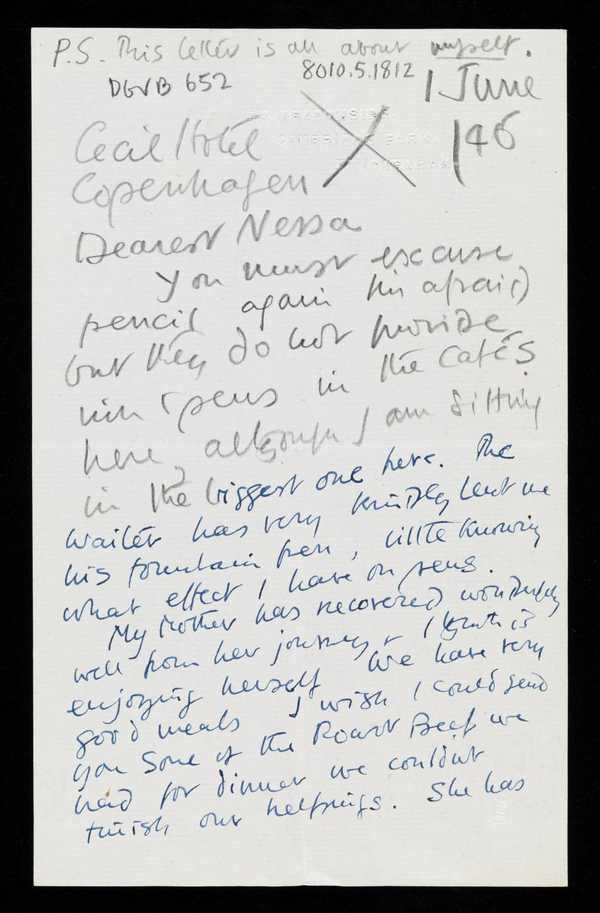 P.S. This letter is all about myself.
DGVB 652
8010.5.1812
1 June
46
Cecil Hotel
Copenhagen
Dearest Nessa
You must excuse
pencil again I'm afraid
but they do not provide
ink & pens in the Cafés
here, although I am sitting
in the biggest one here. The
waiter has very kindly lent me
his fountain pen, little knowing
what effect I have on pens.
My Mother has recovered wonderfully
well from her journey & I think is
enjoying herself. We have very
good meals I wish I could send
you some of the Roast Beef we
had for dinner we couldn't
finish our helpings. She has